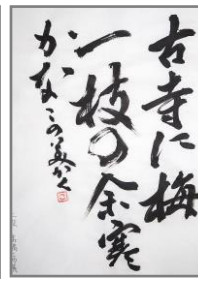 古寺に梅
一枝の余寒
かな この美かく